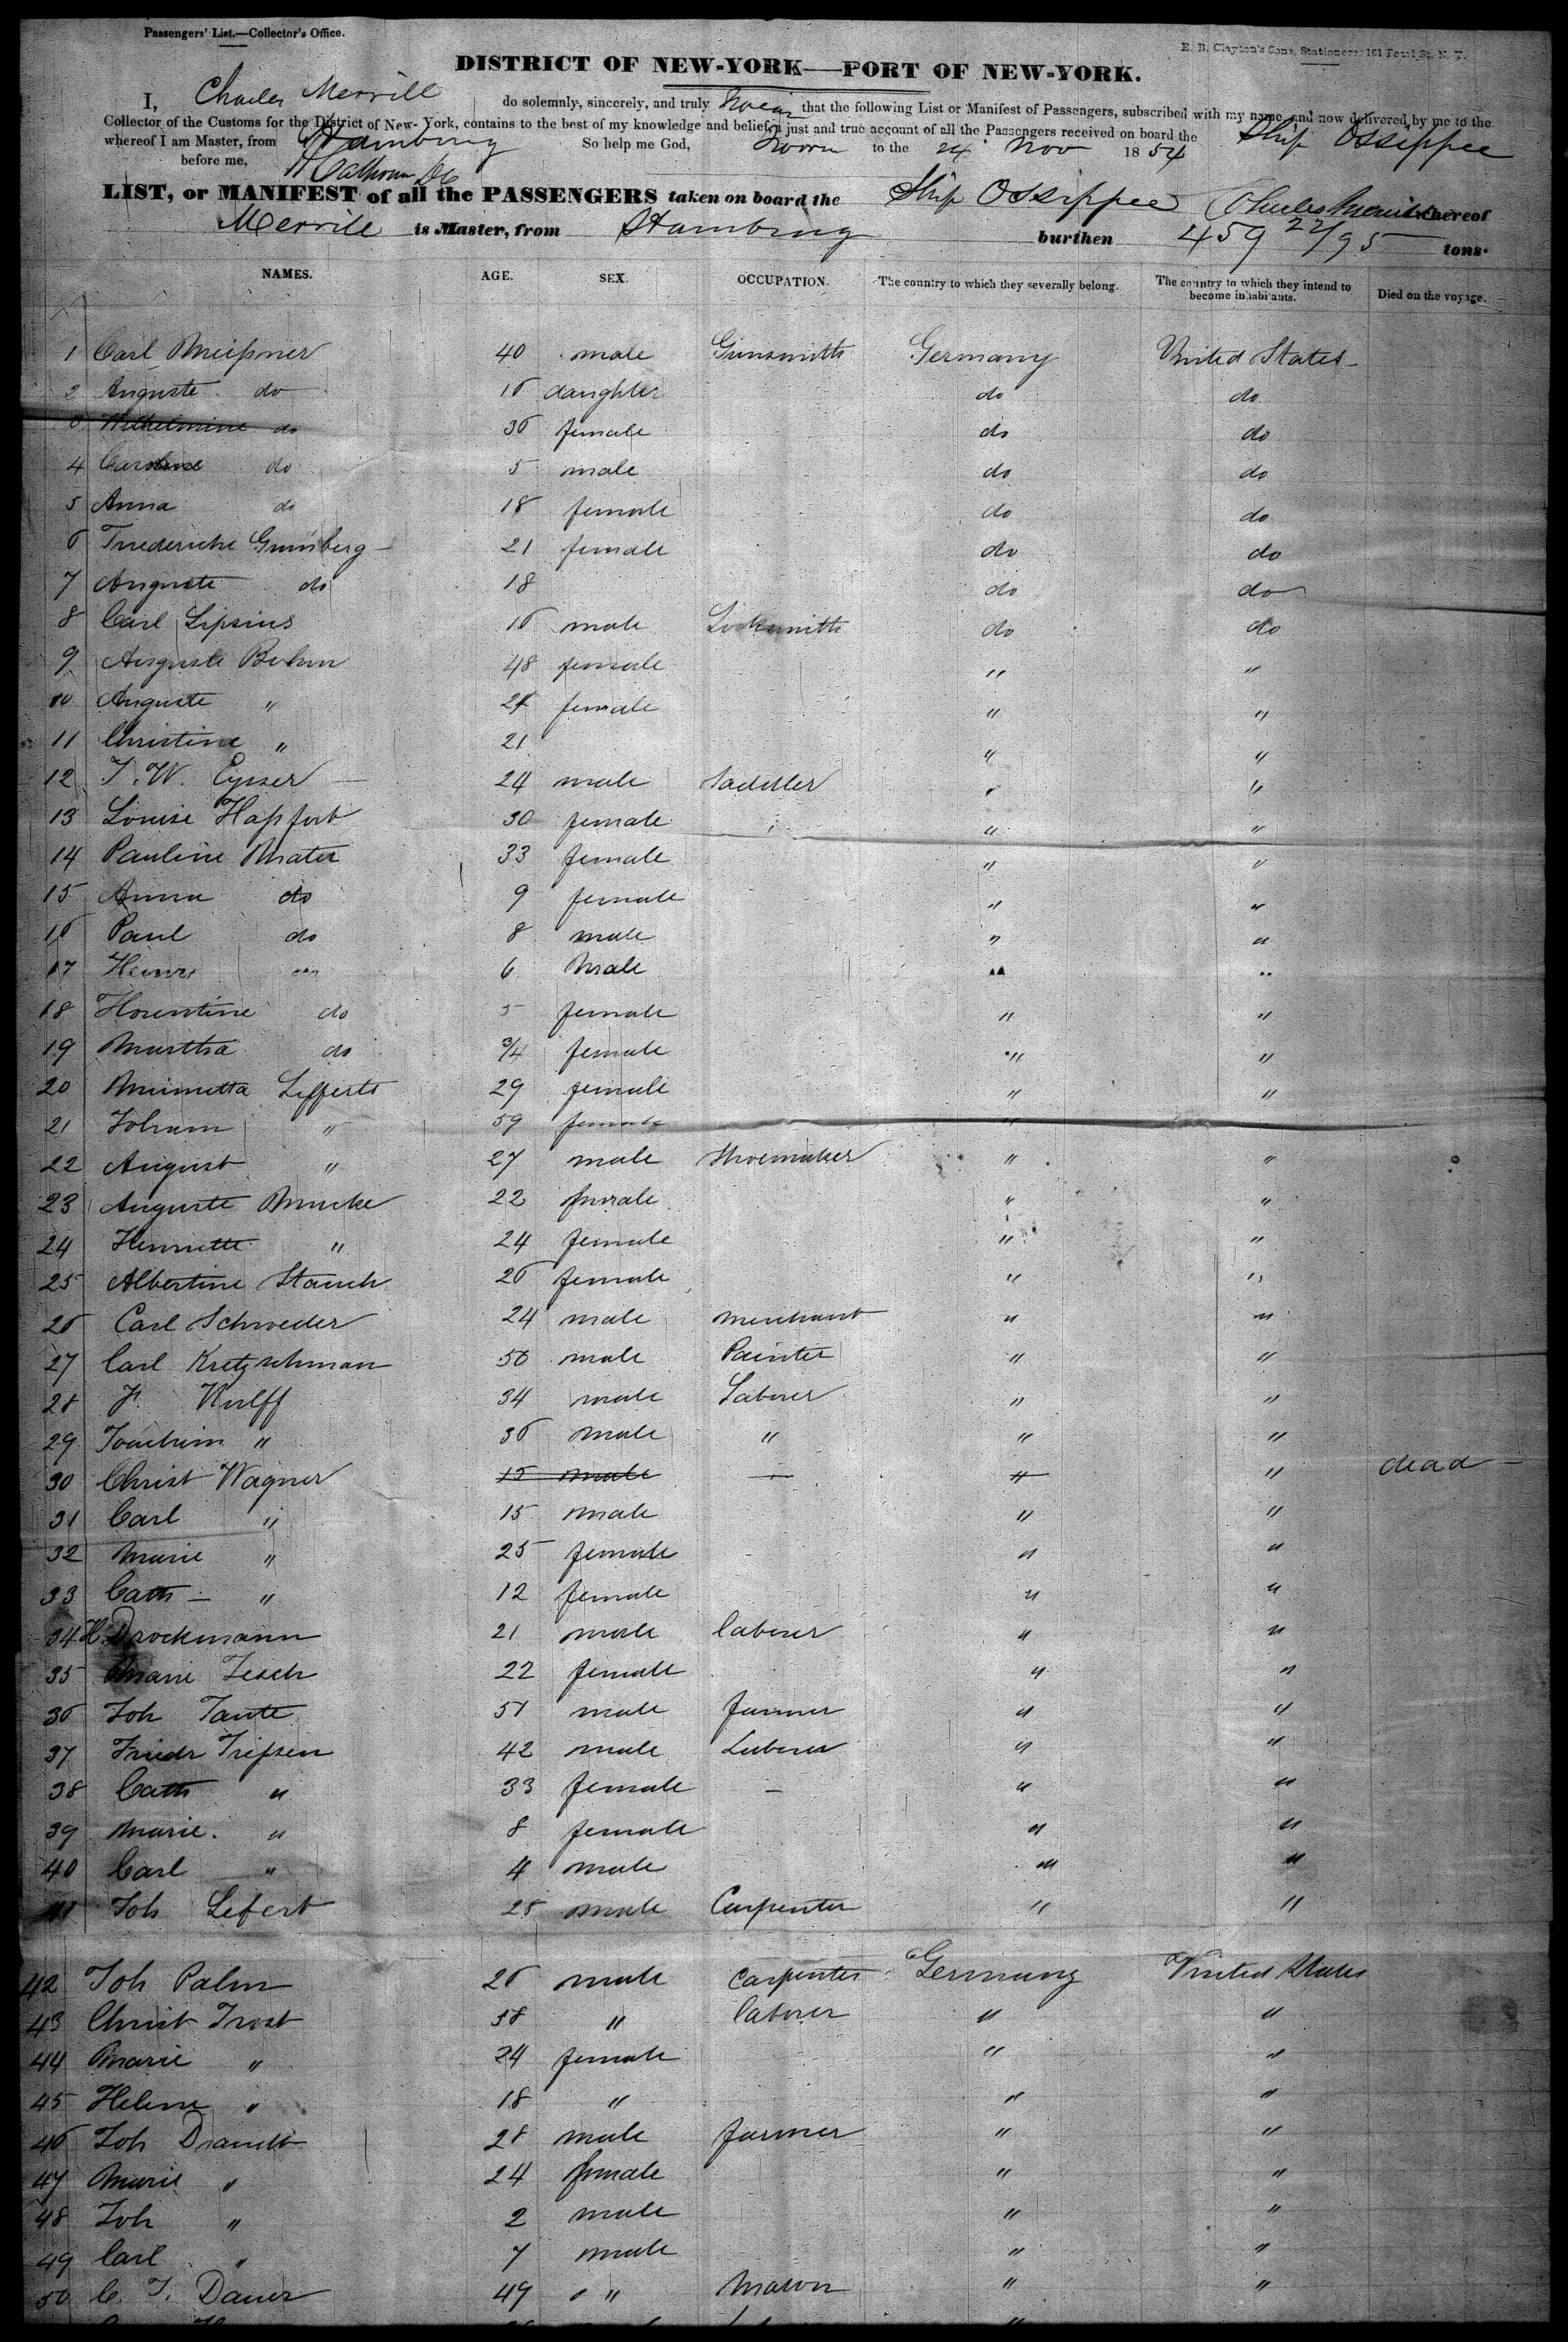 Passengers' List.—Collector's Office.
E. B. Clayton's Sons, Stationers, 161 Pearl St. N. Y.
DISTRICT OF NEW-YORK—PORT OF NEW-YORK.
I, Charles Merrill do solemnly, sincerely, and truly swear that the following List or Manifest of Passengers, subscribed with my name, and now delivered by me to the
Collector of the Customs for the District of New-York, contains to the best of my knowledge and belief, a just and true account of all the Passengers received on board the Ship Ossippee
whereof I am Master, from Hamburg So help me God, Sworn to the 24 Nov 1854
before me, Calhoun
LIST, or MANIFEST of all the PASSENGERS taken on board the Ship Ossippee Charles Merrill whereof
Merrill is Master, from Hamburg burthen 459 22/95 tons.
NAMES. AGE. SEX. OCCUPATION. The country to which they severally belong. The country to which they intend to become inhabitants. Died on the voyage.
1 Carl Meißner 40 male Gunsmith Germany United States
2 Auguste do 16 daughter do do
3 Wilhelmine do 36 female do do
4 do 5 male do do
5 Anna do 18 female do do
6 Friedericke Grunsberg 21 female do do
7 Auguste do 18 do do
8 Carl Lipsius 16 male Locksmith do do
9 Auguste Bohm 48 female " "
10 Auguste " 24 female " "
11 Christine " 21 " "
12 J. W. Eysser 24 male Saddler " "
13 Louise Haßfort 30 female " "
14 Pauline Mater 33 female " "
15 Anna do 9 female " "
16 Paul do 8 male " "
17 6 male " "
18 Florentine do 5 female " "
19 Martha do 3/4 female " "
20 Lefferts 29 female " "
21 " 59 female "
22 August " 27 male Shoemaker " "
23 Auguste Mucke 22 female " "
24 Henriette " 24 female " "
25 Albertine Stauch 26 female " "
26 Carl Schroeder 24 male merchant " "
27 Carl Kretzschman 50 male Painter " "
28 Wulff 34 male Laborer " "
29 Joachim " 36 male " " "
30 Christ Wagner 15 male — " " dead
31 Carl " 15 male " "
32 Marie " 25 female " "
33 Cath — " 12 female " "
34 H. Drockmann 21 male laborer " "
35 Marie Tesch 22 female " "
36 Joh Tante 51 male farmer " "
37 Friedr Trepsen 42 male Laborer " "
38 Cath " 33 female — " "
39 Marie. " 8 female " "
40 Carl " 4 male " "
41 Joh Lefert 28 male Carpenter " "
42 Joh Palm 26 male Carpenter Germany United States
43 Christ Trost 38 " laborer " "
44 Marie " 24 female " "
45 Helene " 18 " " "
46 Joh Brandt 28 male farmer " "
47 Marie " 24 female " "
48 Joh " 2 male " "
49 Carl " 7 male " "
50 C. J. Dauer 49 " Mason " "